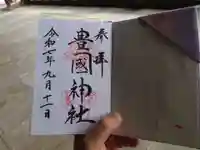 奉拝
豊國神社
令和七年九月十一日